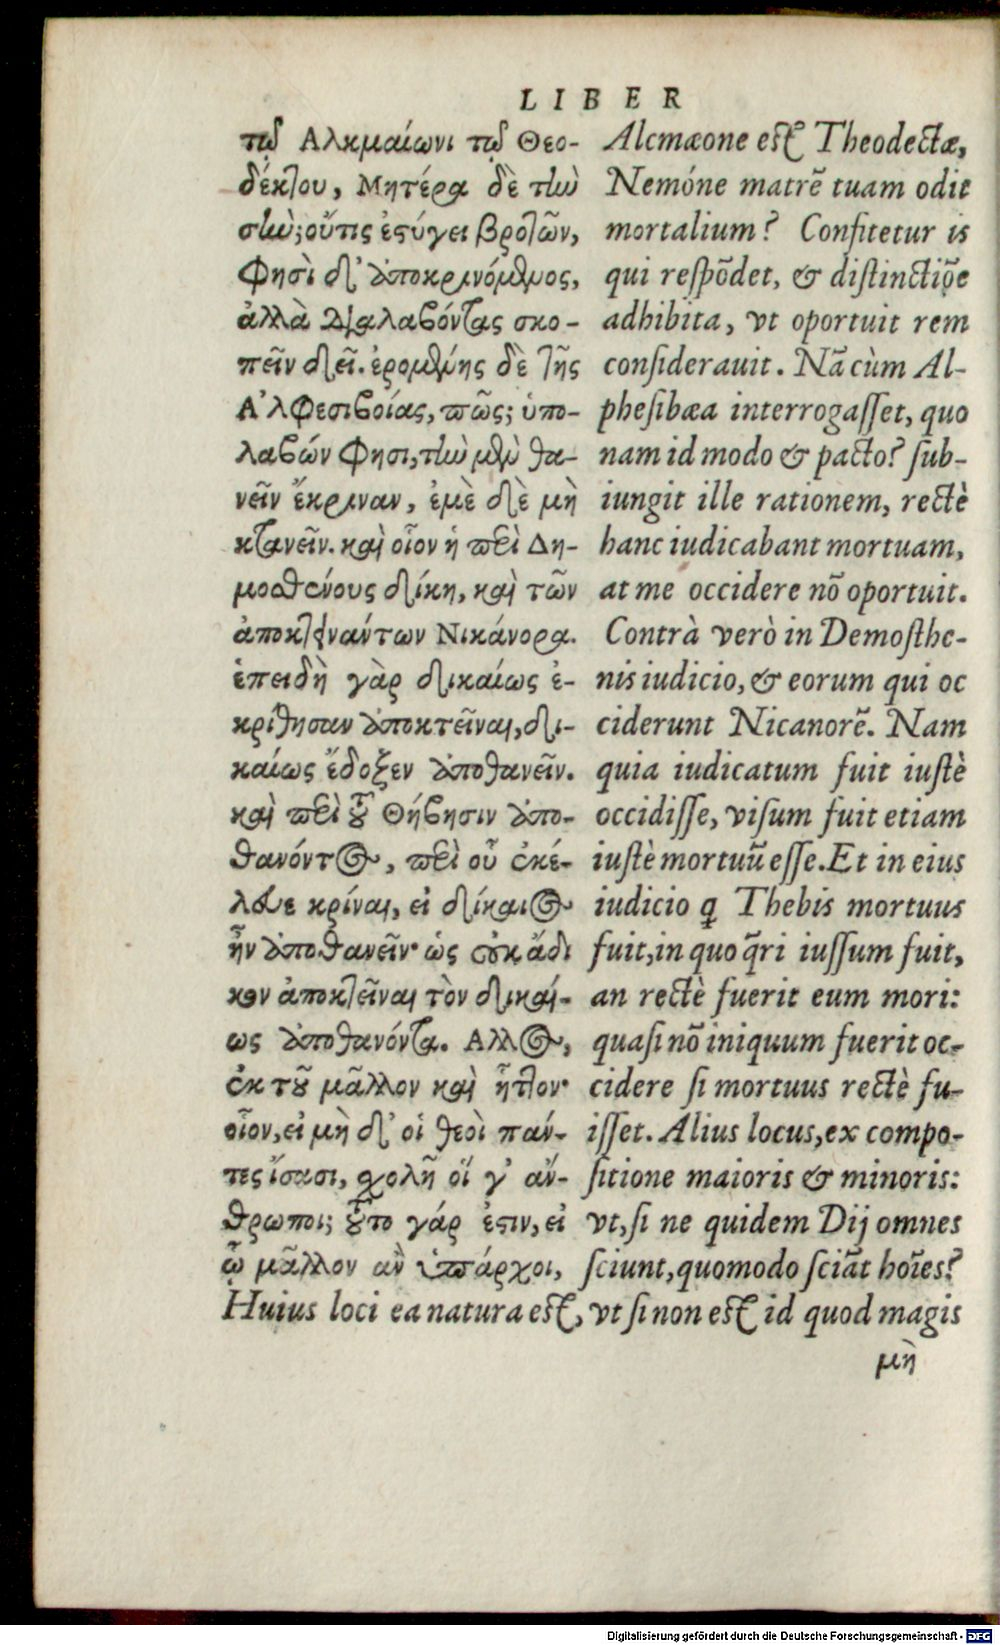 LIBER
τῷ Αλκμαίωνι τῷ Θεο-
δέκτου, Μητέρα δὲ τὴν
σὴν; οὔτις ἐστύγει βροτῶν,
Φησὶ δ' ἀποκρινόμενος,
ἀλλὰ διαλαβόντας σκο-
πεῖν δεῖ. ἐρομένης δὲ τῆς
Α'λφεσιβοίας, πῶς; ὑπο-
λαβών φησι, τὴν μὲν θα-
νεῖν ἔκριναν, ἐμὲ δὲ μὴ
κτανεῖν. καὶ οἷον ἡ περὶ Δη-
μοσθένους δίκη, καὶ τῶν
ἀποκτεινάντων Νικάνορα.
ἐπειδὴ γὰρ δικαίως ἐ-
κρίθησαν ἀποκτεῖναι, δι-
καίως ἔδοξεν ἀποθανεῖν.
καὶ περὶ τοῦ Θήβησιν ἀπο-
θανόντος, περὶ οὗ ἐκέ-
λευσε κρίναι, εἰ δίκαιος
ἦν ἀποθανεῖν· ὡς οὐκ ἄδι
κον ἀποκτεῖναι τὸν δικαί-
ως ἀποθανόντα. Αλλος,
ἐκ τοῦ μᾶλλον καὶ ἧττον·
οἷον, εἰ μὴ δ' οἱ θεοὶ πάν-
τες ἴσασι, σχολῇ οἵ γ' ἄν-
θρωποι; τοῦτο γάρ ἐστιν, εἰ
ᾧ μᾶλλον ἂν ὑπάρχοι,
Alcmæone est Theodectæ,
Nemóne matrē tuam odit
mortalium? Confitetur is
qui respōdet, & distinctiōe
adhibita, vt oportuit rem
considerauit. Nā cùm Al-
phesibæa interrogasset, quo
nam id modo & pacto? sub-
iungit ille rationem, rectè
hanc iudicabant mortuam,
at me occidere nō oportuit.
Contrà verò in Demosthe-
nis iudicio, & eorum qui oc
ciderunt Nicanorē. Nam
quia iudicatum fuit iustè
occidisse, visum fuit etiam
iustè mortuū esse. Et in eius
iudicio q̨ Thebis mortuus
fuit, in quo q̄ri iussum fuit,
an rectè fuerit eum mori:
quasi nō iniquum fuerit oc-
cidere si mortuus rectè fu-
isset. Alius locus, ex compo-
sitione maioris & minoris:
vt, si ne quidem Dij omnes
sciunt, quomodo sciāt hoīes?
Huius loci ea natura est, vt si non est id quod magis
μὴ
Digitalisierung gefördert durch die Deutsche Forschungsgemeinschaft - DFG